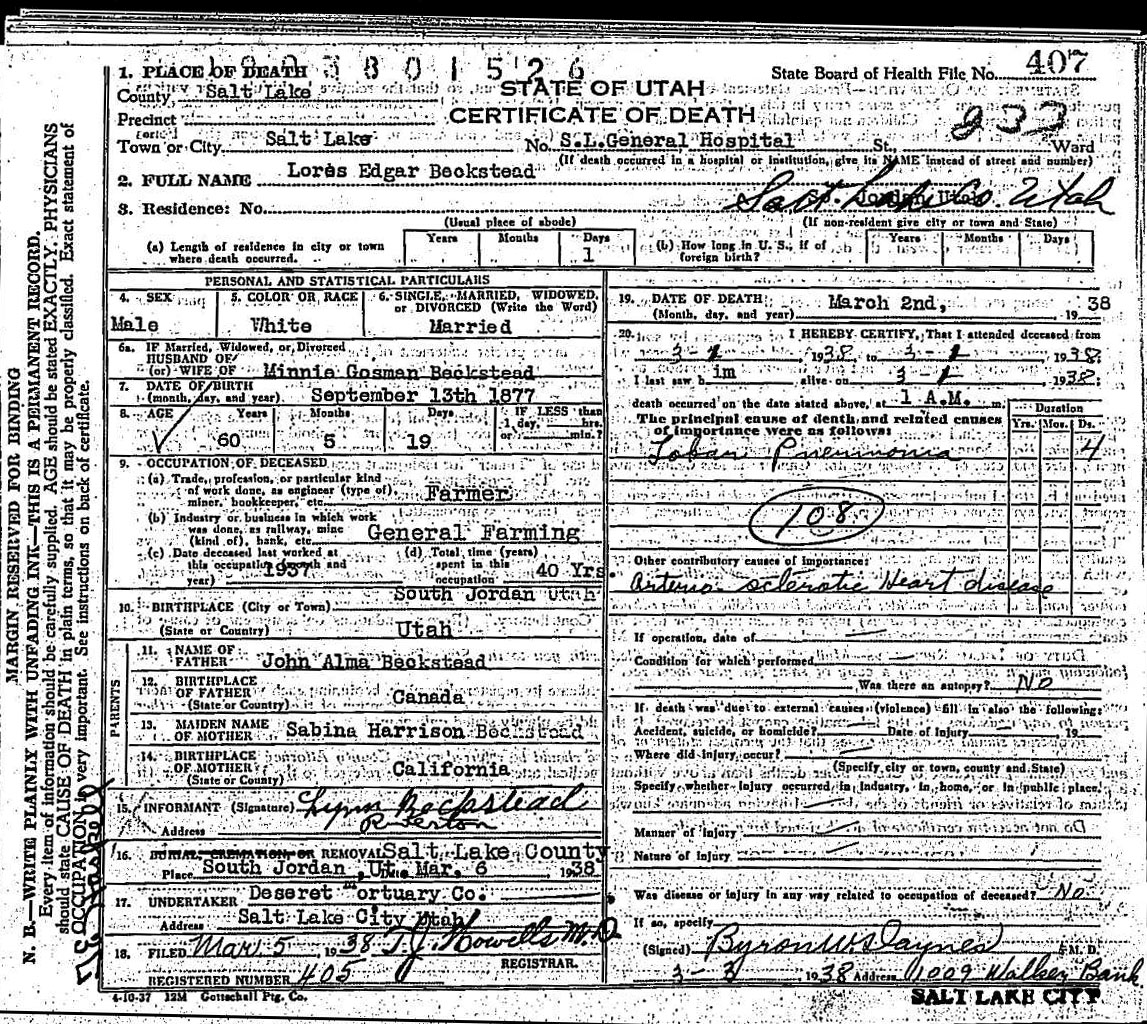 1. PLACE OF DEATH 3801526
State Board of Health File No. 407
County, Salt Lake
STATE OF UTAH
Precinct
CERTIFICATE OF DEATH
233
Town or City. Salt Lake No. S.L.General Hospital St., Ward
(If death occurred in a hospital or institution, give its NAME instead of street and number)
2. FULL NAME Lores Edgar Beckstead
3. Residence: No. Salt Lake Co. Utah
(Usual place of abode) (If non-resident give city or town and State)
(a) Length of residence in city or town where death occurred. Years Months Days 1
(b) How long in U. S., if of foreign birth? Years Months Days
PERSONAL AND STATISTICAL PARTICULARS
4. SEX 5. COLOR OR RACE 6. SINGLE, MARRIED, WIDOWED, or DIVORCED (Write the Word)
Male White Married
6a. IF Married, Widowed, or Divorced
HUSBAND OF
(or) WIFE OF Minnie Gosman Beckstead
7. DATE OF BIRTH
(month, day, and year) September 13th 1877
8. AGE Years Months Days IF LESS than 1 day, hrs. or min.?
60 5 19
9. OCCUPATION OF DECEASED
(a) Trade, profession, or particular kind
of work done, as engineer (type of), Farmer
miner, bookkeeper, etc.
(b) Industry or business in which work
was done, as railway, mine
(kind of), bank, etc. General Farming
(c) Date deceased last worked at
this occupation (month and
year) 1937
(d) Total time (years)
spent in this
occupation 40 Yrs
South Jordan Utah
10. BIRTHPLACE (City or Town)
(State or Country) Utah
PARENTS
11. NAME OF
FATHER John Alma Beckstead
12. BIRTHPLACE
OF FATHER Canada
(State or Country)
13. MAIDEN NAME
OF MOTHER Sabina Harrison Beckstead
14. BIRTHPLACE
OF MOTHER California
(State or County)
15. INFORMANT (Signature) Lynn Beckstead
Address Riverton
16. BURIAL, CREMATION, OR REMOVAL Salt Lake County
Place South Jordan, Ut. Mar. 6 1938
17. UNDERTAKER Deseret Mortuary Co.
Address Salt Lake City Utah
18. FILED Mar. 5 1938 T.J. Howells M.D.
REGISTRAR.
REGISTERED NUMBER 405
4-10-37 12M Gottschall Ptg. Co.
19. DATE OF DEATH March 2nd, 1938
(Month, day, and year)
20. I HEREBY CERTIFY, That I attended deceased from
3-1, 1938, to 3-1, 1938;
I last saw him alive on 3-1 1938;
death occurred on the date stated above, at 1 A.M. m.
The principal cause of death and related causes
of importance were as follows:
Duration
Yrs. Mos. Ds.
Lobar Pneumonia 4
108
Other contributory causes of importance:
Arterio-sclerotic Heart disease
If operation, date of
Condition for which performed
Was there an autopsy? No
If death was due to external causes (violence) fill in also the following:
Accident, suicide, or homicide? Date of Injury 19
Where did injury occur?
(Specify city or town, county and State)
Specify whether injury occurred in industry, in home, or in public place.
Manner of injury
Nature of injury
Was disease or injury in any way related to occupation of deceased? No
If so, specify
(Signed) Byron W Daynes M. D.
3-3 1938 Address 1009 Walker Bank
SALT LAKE CITY
MARGIN RESERVED FOR BINDING
N. B.—WRITE PLAINLY WITH UNFADING INK—THIS IS A PERMANENT RECORD.
Every item of information should be carefully supplied. AGE should be stated EXACTLY. PHYSICIANS
should state CAUSE OF DEATH in plain terms, so that it may be properly classified. Exact statement of
OCCUPATION is very important. See instructions on back of certificate.